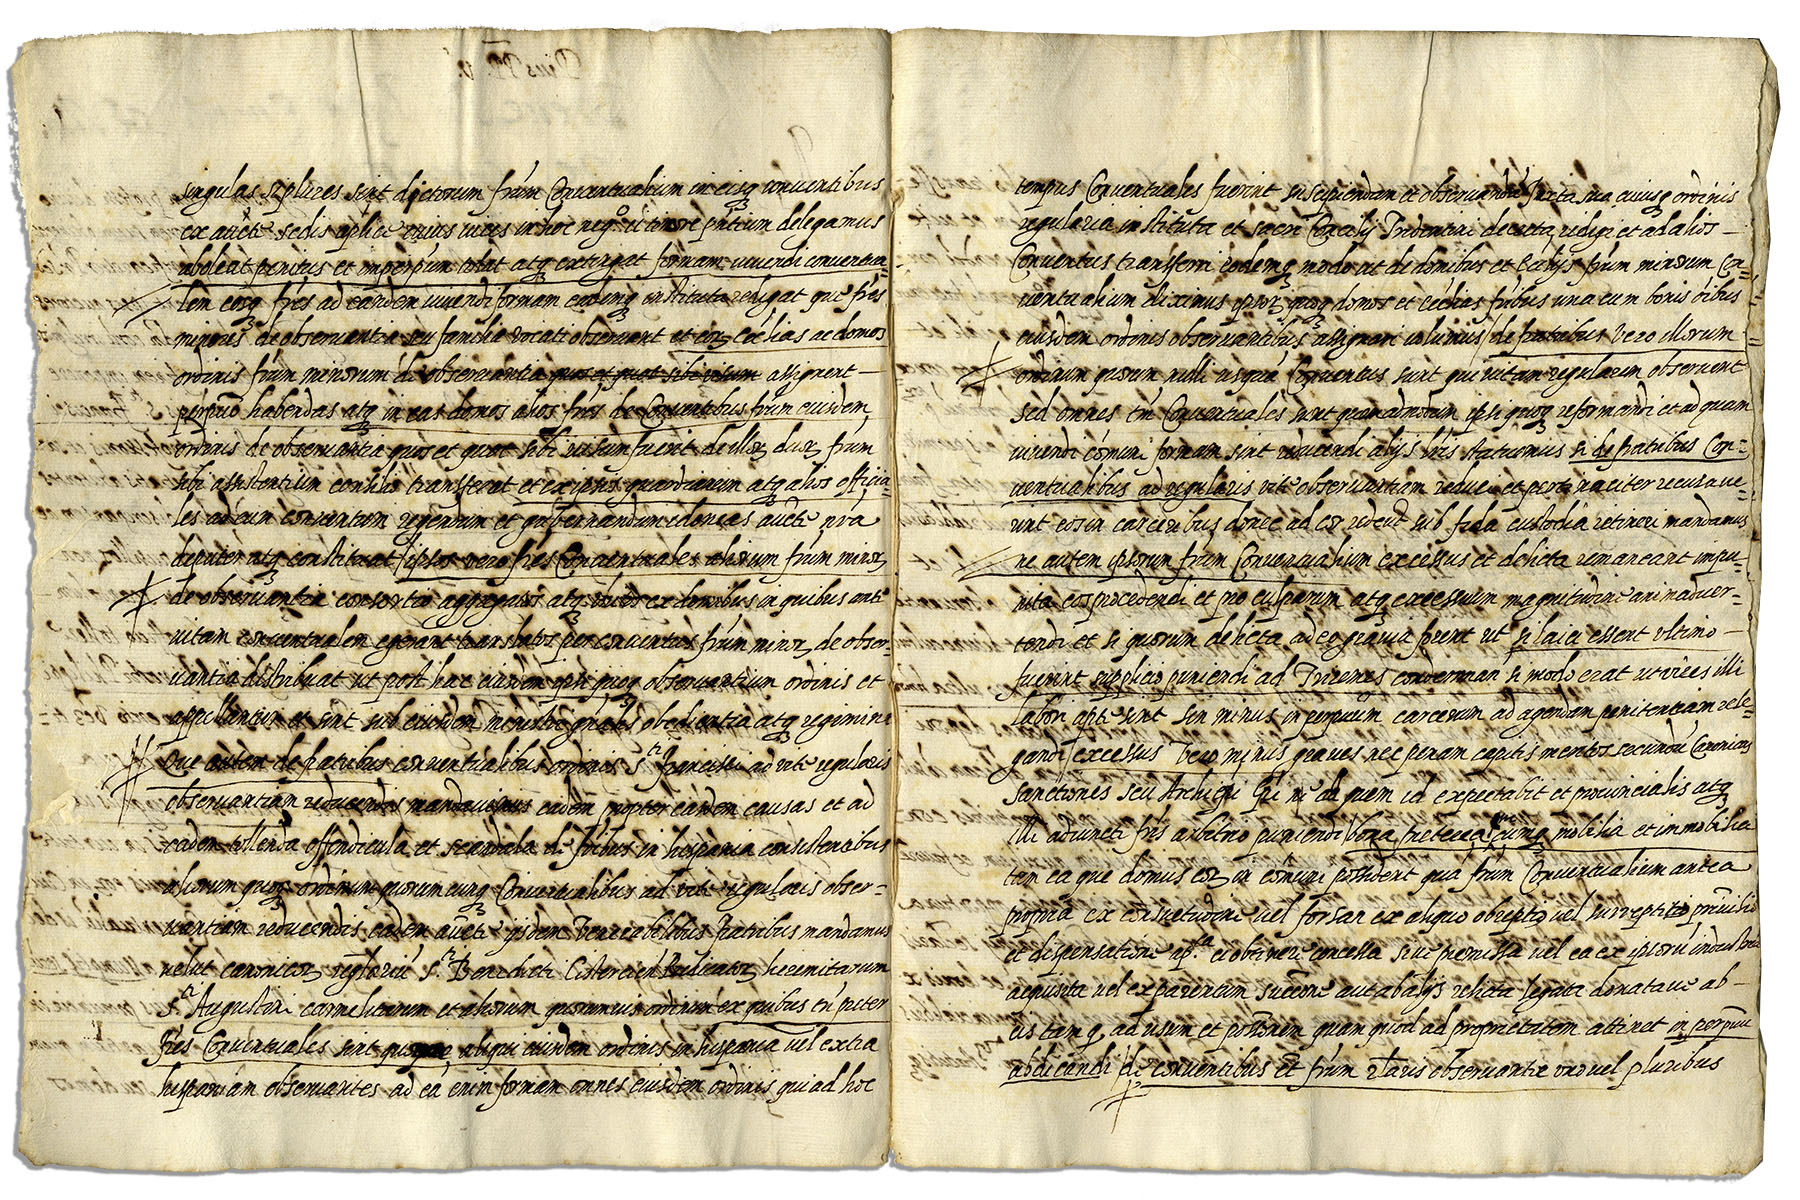 singulas si plures sint dictorum frum Conventualium in eisq conventibus
ex aucte sedis aplice vices in hoc nego delegamus
aboleat penitus et imperpm tolat atq extinguat formam vivendi conventua-
lem eosq fres ad eandem vivendi formam eademq instituta redigat que fres
minores de observantia seu familia vocati observant et eor ecclias ac domos
ordinis frum minorum de observantia assignent
perpuo habendas atq in eas domos alios fres de Conventibus frum eiusdem
ordinis de observantia quos et quot sibi visum fuerit de illor duor frum
sibi assistentium consilio transferat et ex ipsis guardianum atq alios officia-
les ad eum conventum regendum et gubernandum idoneos aucte nra
deputet atq constituat ipsos vero fres Conventuales aliorum frum minor
de observantia consortio aggregatos atq ex domibus in quibus ante
vitam conventualem egerant translatos per conventus frum minor de obser-
vantia distribuat ut post hac eiusdem ipsi quoq observantium ordinis et
appellantur et sint sub eiusdem ministri gnalis obedientia atq regimine
Que autem de fratribus conventualibus ordinis Sti Francisci ad vite regularis
observantiam reducendis mandavimus eadem propter easdem causas et ad
eadem tollenda offendicula et scandala de fribus in hispania consistentibus
aliorum quoq ordinum quorumcunq Conventualibus ad vite regularis obser-
vantiam reducendis eadem aucte ijsdem Venerabilibus fratribus mandamus
velut canonicor reglariu Sti Benedicti Cistercien Predicator heremitarum
Sti Augustini carmelitarum et aliorum quorumvis ordinum ex quibus
fres Conventuales sint aliqui eiusdem ordinis in hispania vel extra
hispaniam observantes ad ea enim formam omnes eiusdem ordinis qui ad hoc
tempus Conventuales fuerint suscipiendam et observandam Juxta sua cuiusq ordinis
regularia instituta et sacri Concilij Tridentini decreta redigi et ad alios
Conventus transferri eodemq modo ut de domibus et Ecclijs frum minorum Con-
ventualium diximus ipsor quoq domos et ecclias fribus una cum bonis oibus
eiusdem ordinis observantibus assignari volumus de fratribus vero illorum
ordinum quorum nulli usquam Conventus sunt qui vitam regularem observent
sed omnes tm Conventuales sunt quemadmodum ipsi quoq reformandi et ad quam
vivendi comuni formam sint reducendi alijs lris statuemus si de fratribus Con-
ventualibus ad regularis vite observantiam reduci et pertinaciter recusave-
rint eos in carceribus donec ad cor redeat sub fida custodia retineri mandamus
ne autem ipsorum frum Conventualium excessus et delicta remaneant impu-
nita eos procedendi et pro culparum atq excessuum magnitudine animadver-
tendi et si quorum delicta adeo gravia fuerint ut si laici essent ultimo
fuerint supplicio puniendi ad Triremes condemnari si modo erat ut vires illi
labori apte sint sin minus in perpuum carcerum ad agendam penitenciam rele-
gandi excessus vero minus graves nec penam capitis meritos secundu Canonicas
Sanctiones seu Archiepi ad quem id expectabit et provincialis atq
illi adiuncti fris arbitrio puniendi bona preterea mobilia et immobilia
tam ea que domus eor in comuni possident qua frum Conventualium antea
propria ex consuetudine vel forsan ex aliquo obreptio vel surreptitio privilegio
et dispensatione apca ei obtinere concessa sive permissa vel ea ex ipsoru industria
acquisita vel ex parentum succone aut ab alijs relicta legata donatave ab
eis tam q ad usum et possnem quam quod ad proprietatem attinet in perpuu
abdicandi de conventibus et frum rlaris observantie uno vel pluribus